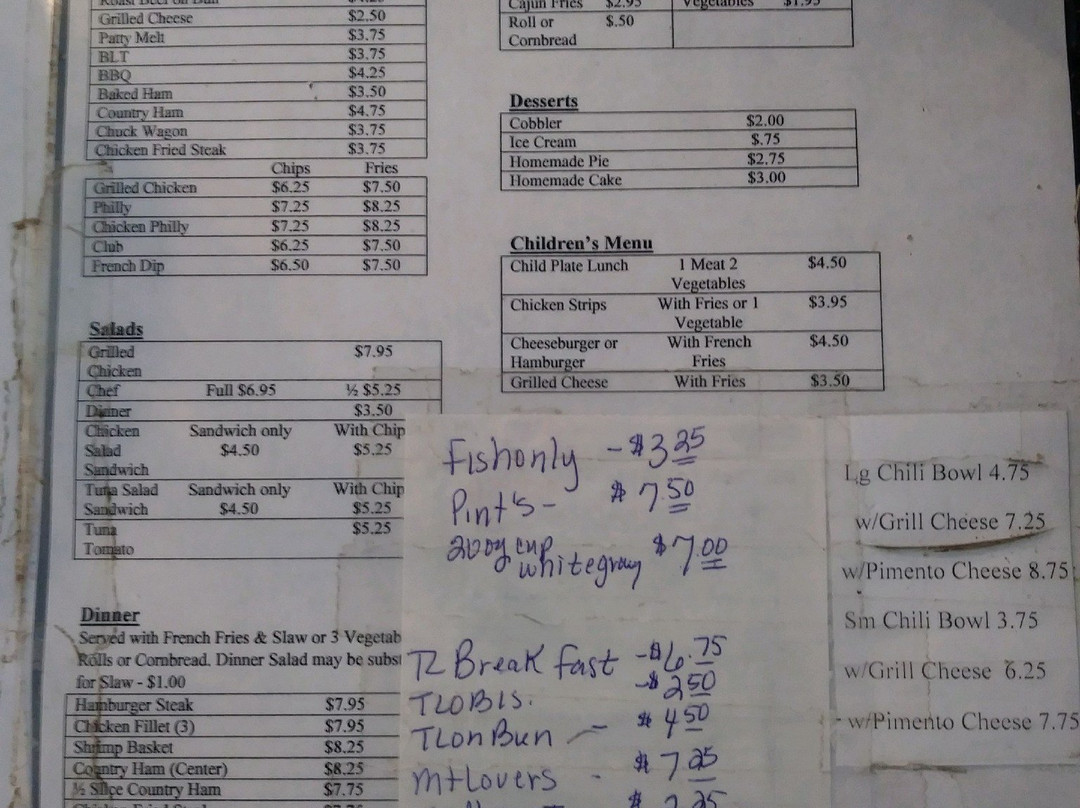 Roast Beef on Bun
Grilled Cheese $2.50
Patty Melt $3.75
BLT $3.75
BBQ $4.25
Baked Ham $3.50
Country Ham $4.75
Chuck Wagon $3.75
Chicken Fried Steak $3.75
Chips Fries
Grilled Chicken $6.25 $7.50
Philly $7.25 $8.25
Chicken Philly $7.25 $8.25
Club $6.25 $7.50
French Dip $6.50 $7.50
Salads
Grilled $7.95
Chicken
Chef Full $6.95 ½ $5.25
Dinner $3.50
Chicken Sandwich only With Chip
Salad $4.50 $5.25
Sandwich
Tuna Salad Sandwich only With Chip
Sandwich $4.50 $5.25
Tuna $5.25
Tomato
Dinner
Served with French Fries & Slaw or 3 Vegetab
Rolls or Cornbread. Dinner Salad may be subst
for Slaw - $1.00
Hamburger Steak $7.95
Chicken Fillet (3) $7.95
Shrimp Basket $8.25
Country Ham (Center) $8.25
½ Slice Country Ham $7.75
Cajun Fries $2.95 Vegetables $1.95
Roll or $.50
Cornbread
Desserts
Cobbler $2.00
Ice Cream $.75
Homemade Pie $2.75
Homemade Cake $3.00
Children's Menu
Child Plate Lunch 1 Meat 2 $4.50
Vegetables
Chicken Strips With Fries or 1 $3.95
Vegetable
Cheeseburger or With French $4.50
Hamburger Fries
Grilled Cheese With Fries $3.50
Fishonly - $3.25
Pint's - $7.50
20oz cup $7.00
whitegravy
TL Break fast - $6.75
TLOBIS. - $2.50
TLon Bun - $4.50
Mtlovers - $7.25
Lg Chili Bowl 4.75
w/Grill Cheese 7.25
w/Pimento Cheese 8.75
Sm Chili Bowl 3.75
w/Grill Cheese 6.25
- w/Pimento Cheese 7.75